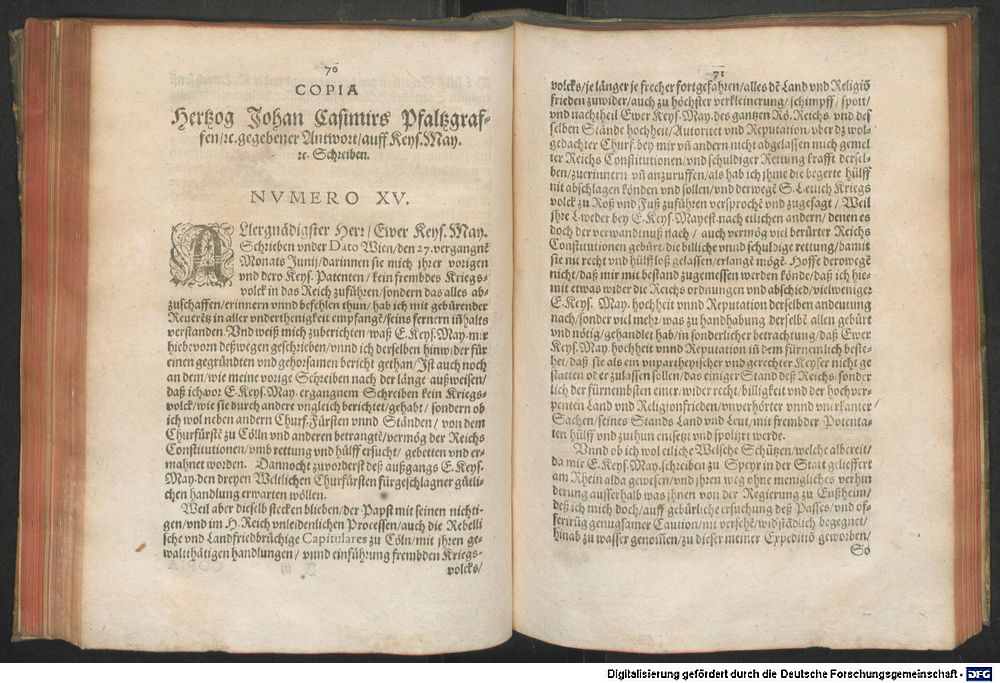 70
COPIA
Hertzog Johan Casimirs Pfaltzgraf-
fen/ꝛc. gegebener Antwort/auff Keys. May.
ꝛc. Schreiben.
NVMERO XV.
ALlergnädigster Herꝛ/ Ewer Keys. May.
Schrieben vnder Dato Wien/den 27. vergangnẽ
Monats Junij/darinnen sie mich jhrer vorigen
vnd dero Keys. Patenten/ kein frembdes Kriegs-
volck in das Reich zuführen/sondern das alles ab-
zuschaffen/erinnern vnnd befehlen thun/ hab ich mit gebürender
Reuerẽtz in aller vnderthenigkeit empfangẽ/seins fernern iñhalts
verstanden. Vnd weiß mich zuberichten/waß E. Keys. May. mir
hiebevorn deßwegen geschrieben/vnnd ich derselben hinwider für
einen gegründten vnd gehorsamen bericht gethan/ Ist auch noch
an dem/wie meine vorige Schreiben nach der länge außweisen/
daß ich vor E. Keys. May. ergangnem Schreiben kein Kriegs-
volck/wie sie durch andere vngleich berichtet/gehabt/ sondern ob
ich wol neben andern Churf. Fürsten vnnd Ständen/ von dem
Churfürstẽ zu Cölln vnd anderen betrangtẽ/vermög der Reichs
Constitutionen/vmb rettung vnd hülff ersucht/ gebetten vnd er-
mahnet worden. Dannocht zuvorderst deß außgangs E. Keys.
May. den dreyen Weltlichen Churfürsten fürgeschlagner gütli-
chen handlung erwarten wöllen.
Weil aber dieselb stecken blieben/der Papst mit seinen nichti-
gen/vnd im H. Reich vnleidenlichen Processen/auch die Rebelli
sche vnd Landfriedbrüchige Capitulares zu Cöln/mit jhren ge-
walthätigen handlungen/ vnnd einführung frembden Kriegs-
volcks/
71
volcks/je länger je frecher fortgefahren/alles dẽ Land vnd Religiõ
frieden zuwider/auch zu höchster verkleinerung/schimpff/ spott/
vnd nachtheil Ewer Keys. May. des gantzen Rö. Reichs vnd des
selben Stände hochheit/Autoritet vnd Reputation/vber dz wol-
gedachter Churf. bey mir vñ andern nicht abgelassen mich gemel
ter Reichs Constitutionen/vnd schuldiger Rettung krafft dersel-
ben/zuerinnern vñ anzuruffen/als hab ich jhme die begerte hülff
nit abschlagen können vnd sollen/vnd derwegẽ S. Leuch Kriegs
volck zu Roß vnd Fuß zuführen versprochẽ vnd zugesagt/ Weil
jhre L. weder bey E. Keys. Mayest. nach etlichen andern/ denen es
doch der verwandtnuß nach/ auch vermög viel berürter Reichs
Constitutionen gebürt/die billiche vnnd schuldige rettung/damit
sie nit recht vnd hülffloß gelassen/erlangẽ mögẽ. Hoffe derowegẽ
nicht/daß mir mit bestand zugemessen werden könde/daß ich hie-
mit etwas wider die Reichs ordnungen vnd abschied/vielweniger
E. Keys. May. hochheit vnnd Reputation derselben andeutung
nach/sonder viel mehr/was zu handhabung derselbẽ allen gebürt
vnd nötig/gehandlet hab/in sonderlicher betrachtung/daß Ewer
Keys. May. hochheit vnnd Reputation iñ dem fürnemlich beste-
het/daß sie als ein vnpartheyischer vnd gerechter Keyser nicht ge
statten oder zulassen sollen/das einiger Stand deß Reichs/sonder
lich der fürnembsten einer/wider recht/billigkeit vnd der hochver-
penten Land vnd Religionfrieden/vnverhörter vnnd vnerkanter
Sachen/seines Stands Land vnd Leut/mit frembder Potenta-
ten hülff vnd zuthun entsetzt vnd spoliiert werde.
Vnnd ob ich wol etliche Welsche Schützen/welche albereit/
da mir E. Keys. May. schreiben zu Speyr in der Statt gelieffert
am Rhein alda gewesen/vnd jhren weg ohne menigliches verhin
derung ausserhalb was jhnen von der Regierung zu Enßheim/
deß ich mich doch/auff gebürliche ersuchung deß Passes/vnd of-
ferirũg genugsamer Caution/nit versehẽ/widständlich begegnet/
hinab zu wasser genom̃en/zu dieser meiner Expeditiõ geworben/
So
Digitalisierung gefördert durch die Deutsche Forschungsgemeinschaft - DFG